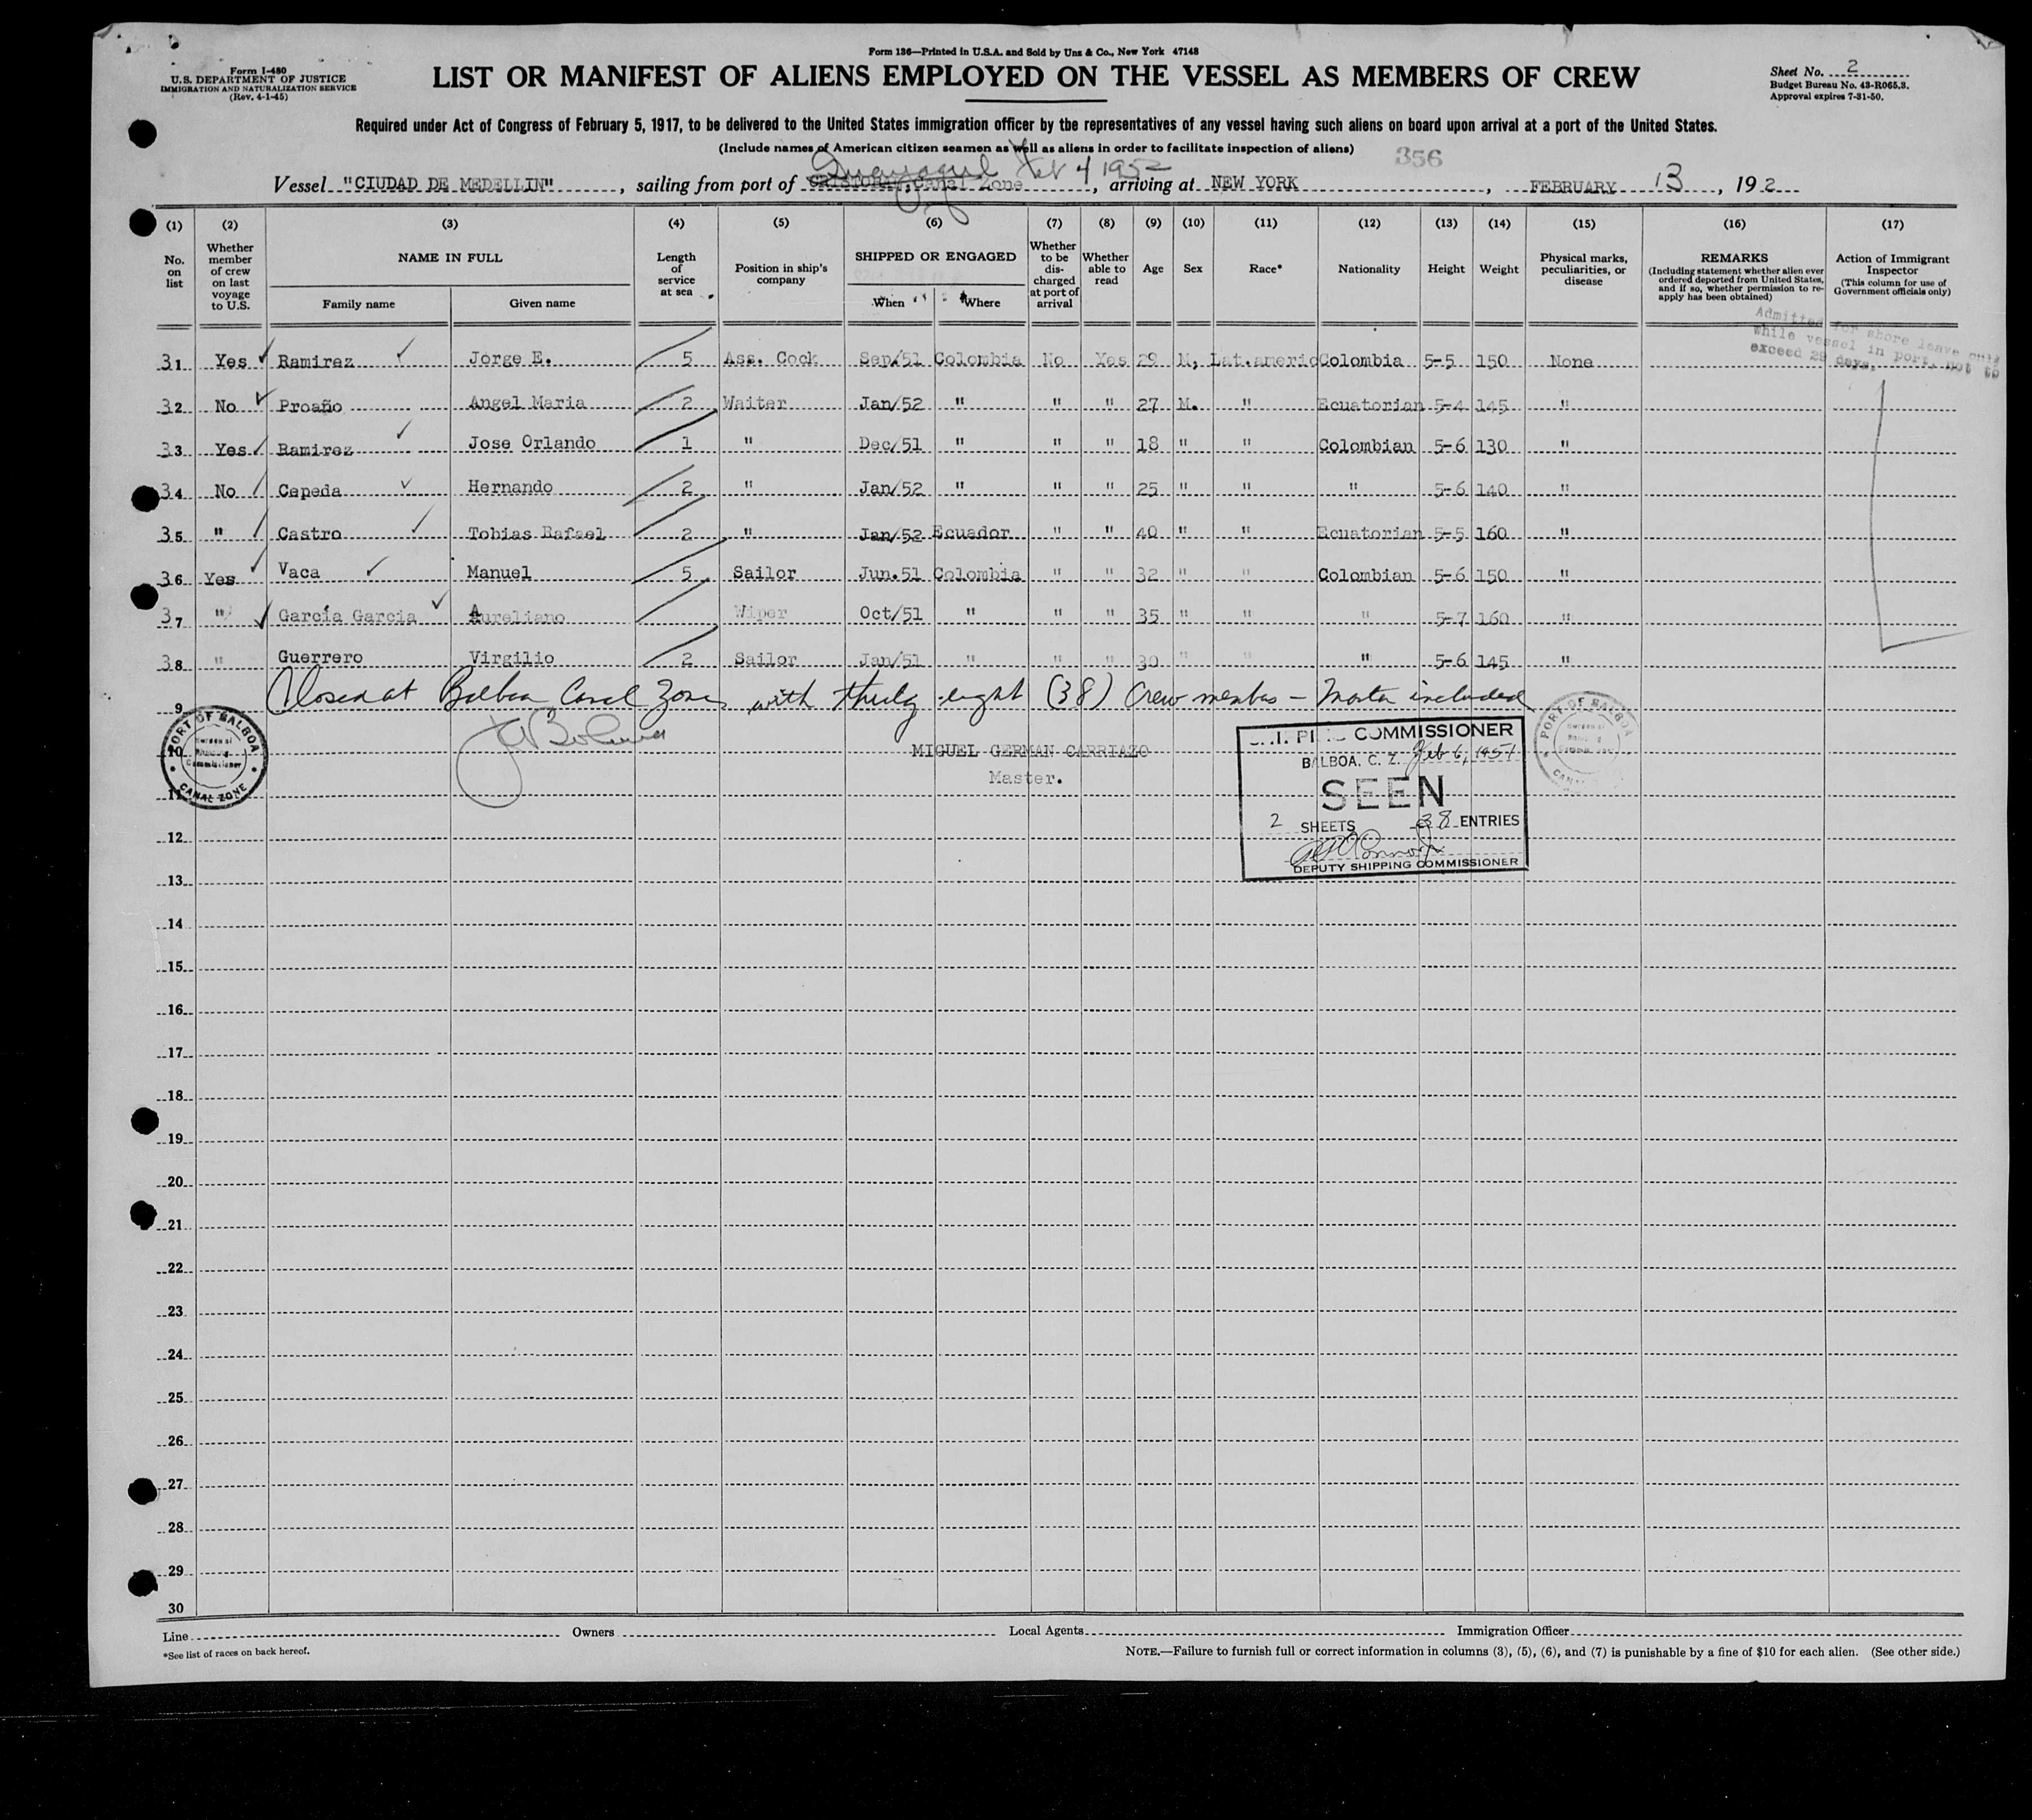 Form 136—Printed in U.S.A. and Sold by Unz & Co., New York 47148
Form I-480
U.S. DEPARTMENT OF JUSTICE
IMMIGRATION AND NATURALIZATION SERVICE
(Rev. 4-1-45)
LIST OR MANIFEST OF ALIENS EMPLOYED ON THE VESSEL AS MEMBERS OF CREW
Sheet No. 2
Budget Bureau No. 43-R065.3.
Approval expires 7-31-50.
Required under Act of Congress of February 5, 1917, to be delivered to the United States immigration officer by the representatives of any vessel having such aliens on board upon arrival at a port of the United States.
(Include names of American citizen seamen as well as aliens in order to facilitate inspection of aliens)
356
Guayaquil Feb 4 1952
Vessel "CIUDAD DE MEDELLIN", sailing from port of CRISTOBAL, Canal Zone, arriving at NEW YORK, FEBRUARY 13, 192
(1) (2) (3) (4) (5) (6) (7) (8) (9) (10) (11) (12) (13) (14) (15) (16) (17)
No. on list
Whether member of crew on last voyage to U.S.
NAME IN FULL
Family name
Given name
Length of service at sea
Position in ship's company
SHIPPED OR ENGAGED
When
Where
Whether to be discharged at port of arrival
Whether able to read
Age
Sex
Race*
Nationality
Height
Weight
Physical marks, peculiarities, or disease
REMARKS
(Including statement whether alien ever ordered deported from United States, and if so, whether permission to re-apply has been obtained)
Action of Immigrant Inspector
(This column for use of Government officials only)
Admitted for shore leave only
while vessel in port, not to
exceed 29 days.
31 Yes Ramirez Jorge E. 5 Ass. Cock Sep/51 Colombia No Yes 29 M, Lat.americ Colombia 5-5 150 None
32 No Proaño Angel Maria 2 Waiter Jan/52 " " " 27 M. " Ecuatorian 5-4 145 "
33 Yes Ramirez Jose Orlando 1 " Dec/51 " " " 18 " " Colombian 5-6 130 "
34 No Cepeda Hernando 2 " Jan/52 " " " 25 " " " 5-6 140 "
35 " Castro Tobias Rafael 2 " Jan/52 Ecuador " " 40 " " Ecuatorian 5-5 160 "
36 Yes Vaca Manuel 5 Sailor Jun.51 Colombia " " 32 " " Colombian 5-6 150 "
37 " García Garcia Aureliano Wiper Oct/51 " " " 35 " " " 5-7 160 "
38 " Guerrero Virgilio 2 Sailor Jan/51 " " " 30 " " " 5-6 145 "
Closed at Balboa Canal Zone with thirty eight (38) crew members - Master included
9
10
11
PORT OF BALBOA
Commissioner
CANAL ZONE
MIGUEL GERMAN CARRIAZO
Master.
COMMISSIONER
BALBOA, C. Z. Feb 6, 1951
SEEN
2 SHEETS 38 ENTRIES
DEPUTY SHIPPING COMMISSIONER
PORT OF BALBOA
12
13
14
15
16
17
18
19
20
21
22
23
24
25
26
27
28
29
30
Line
Owners
Local Agents
Immigration Officer
*See list of races on back hereof.
NOTE.—Failure to furnish full or correct information in columns (3), (5), (6), and (7) is punishable by a fine of $10 for each alien. (See other side.)